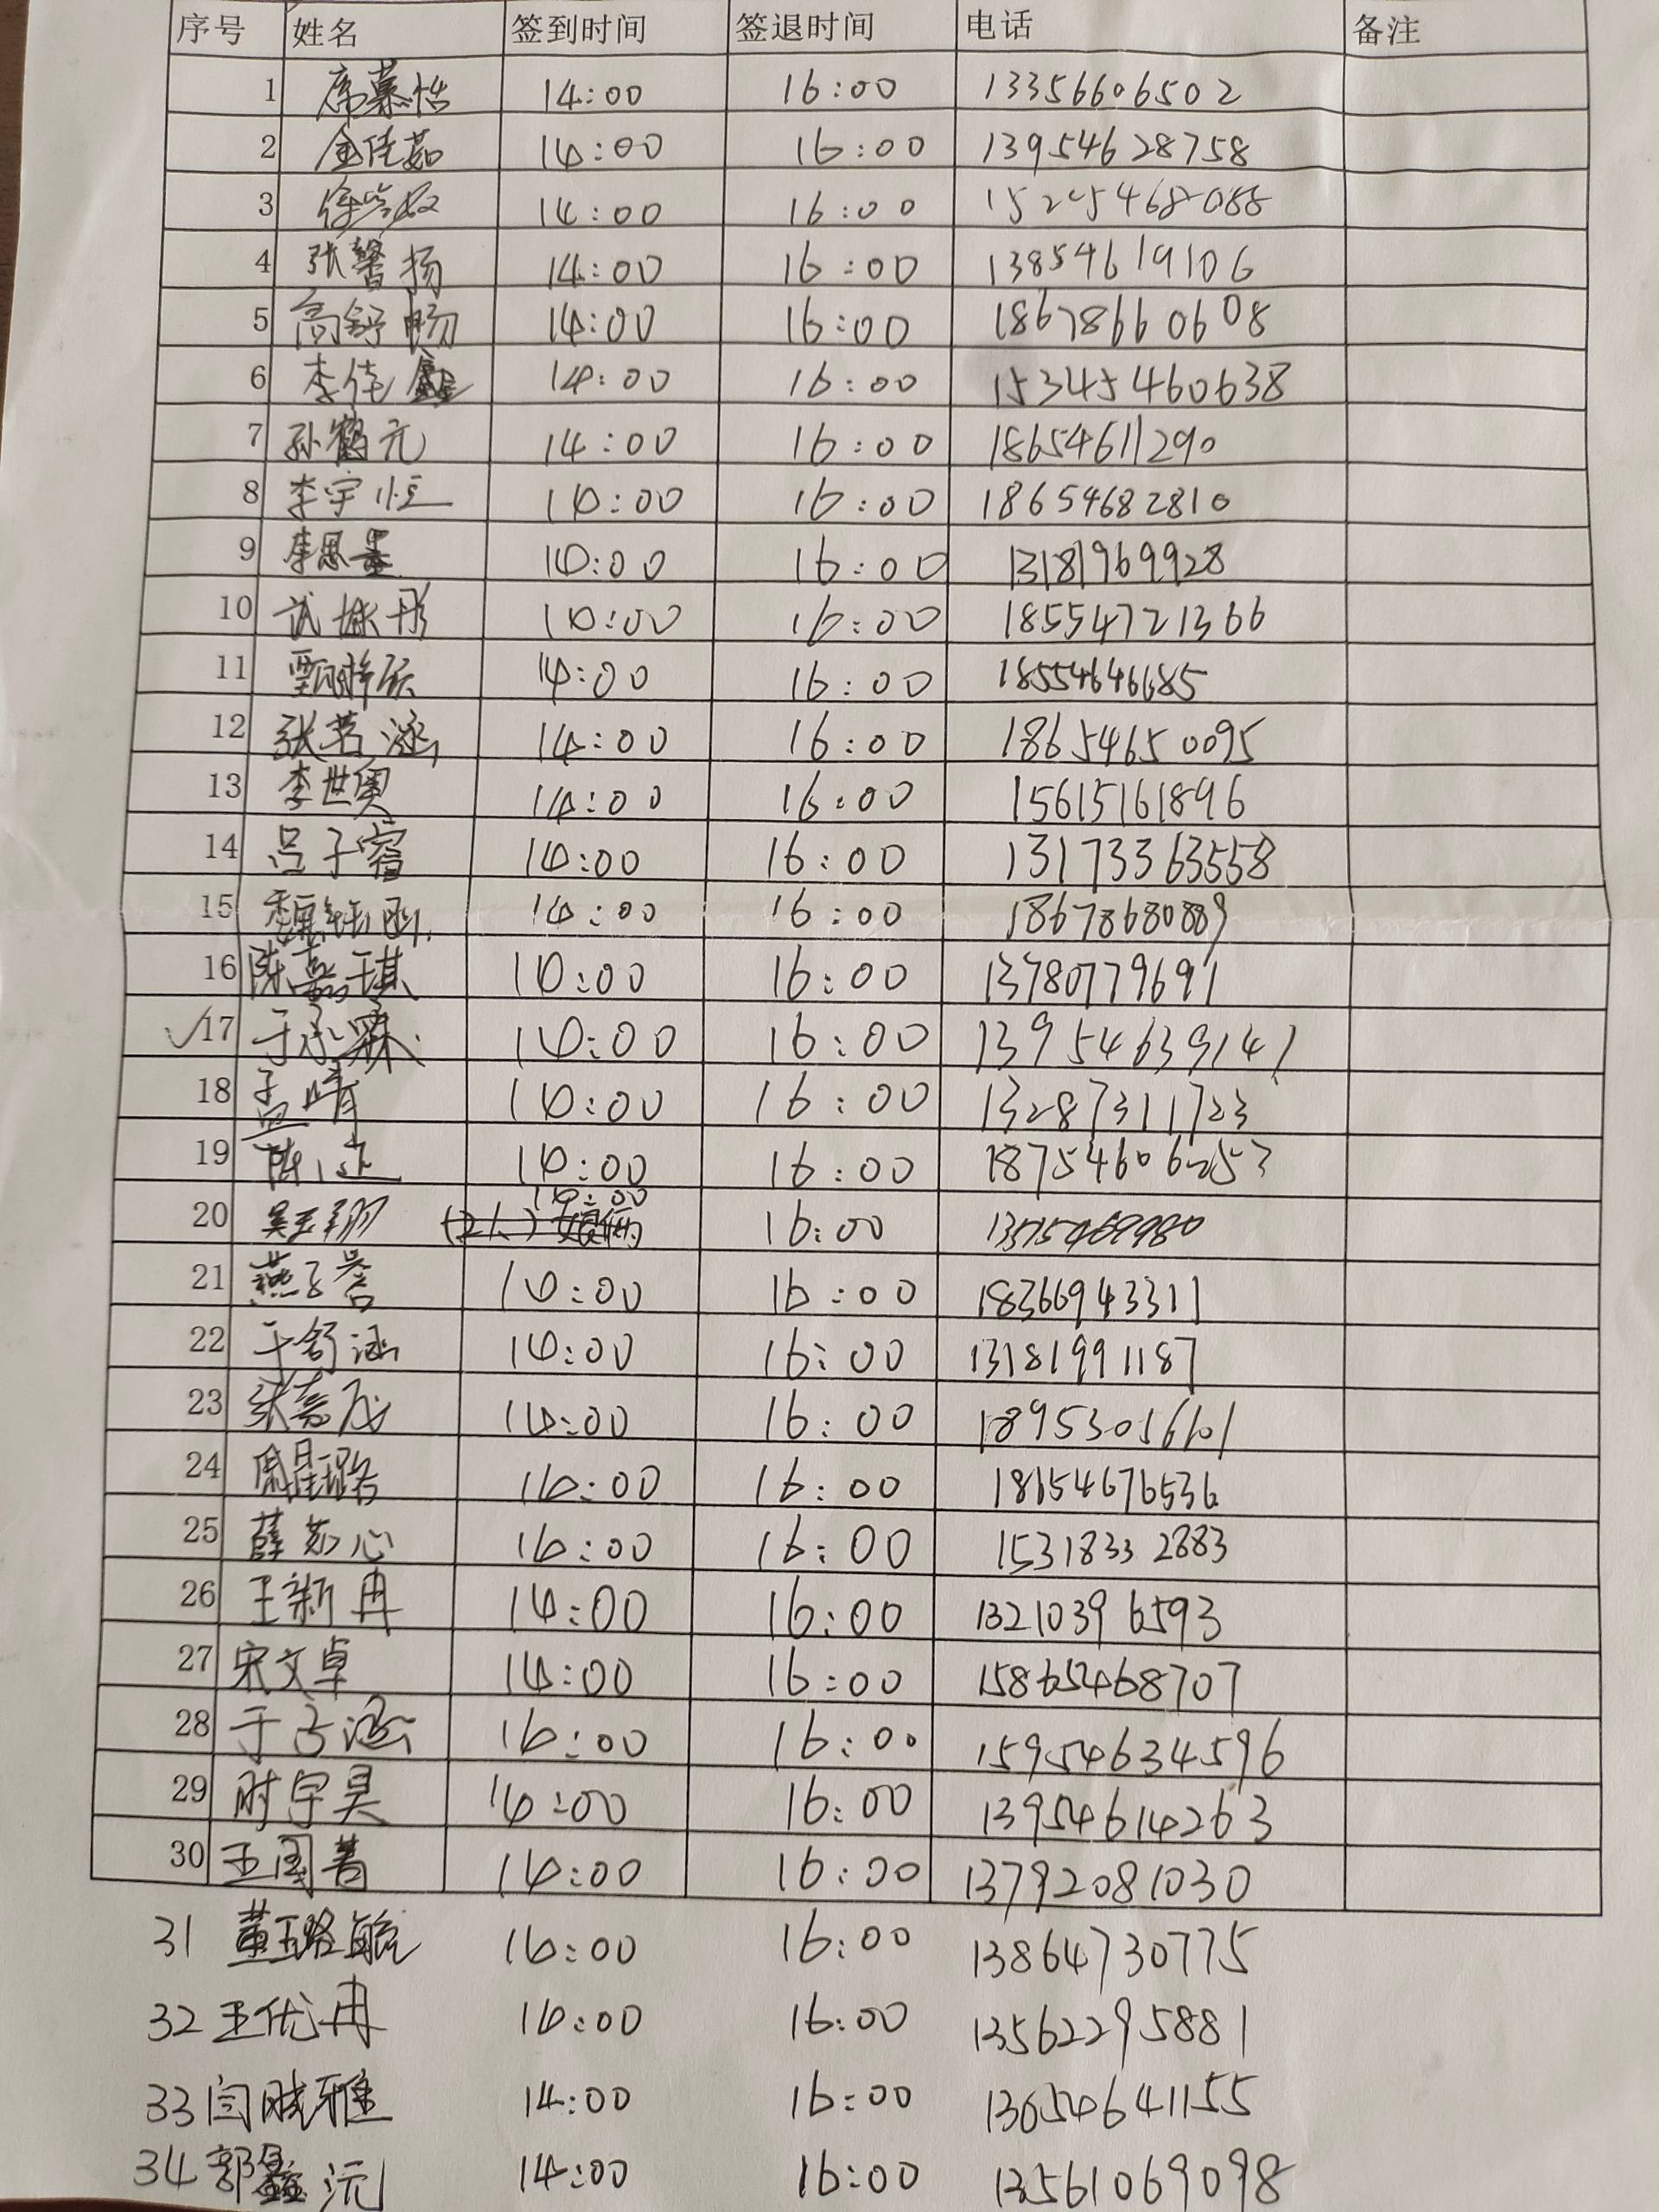 序号 姓名 签到时间 签退时间 电话 备注
1 席慕恬 14:00 16:00 13356606502
2 金佳茹 14:00 16:00 13954628758
3 14:00 16:00
4 张馨扬 14:00 16:00 13854619106
5 高舒畅 14:00 16:00 18678660608
6 李佳鑫 14:00 16:00 15345460638
7 孙鹤元 14:00 16:00 18654611290
8 李宇恒 14:00 16:00 18654682810
9 李思墨 14:00 16:00 13181969928
10 14:00 16:00 18554721366
11 14:00 16:00 18554646685
12 张茗涵 14:00 16:00 18654650095
13 李世奥 14:00 16:00 15615161896
14 吕子睿 14:00 16:00 13173363558
15 魏钰函 14:00 16:00 18678680889
16 陈嘉琪 14:00 16:00 13780779691
17 于承霖 14:00 16:00 13954639141
18 孟晴 14:00 16:00 13287311723
19 14:00 16:00 18754606253
20 吴玉翔 14:00 16:00
21 燕子誉 14:00 16:00 18366943311
22 于舒涵 14:00 16:00 13181991187
23 14:00 16:00 18953016601
24 14:00 16:00 18654676536
25 薛茹心 14:00 16:00 15318332883
26 王新冉 14:00 16:00 13210396593
27 宋文卓 14:00 16:00 15865468707
28 于子涵 14:00 16:00 15954634596
29 时宇昊 14:00 16:00 13954614263
30 王国菁 14:00 16:00 13792081030
31 董璐毓 14:00 16:00 13864730775
32 王优冉 14:00 16:00 13562295881
33 闫晓雅 14:00 16:00 13054641155
34 郭鑫沅 14:00 16:00 13561069098